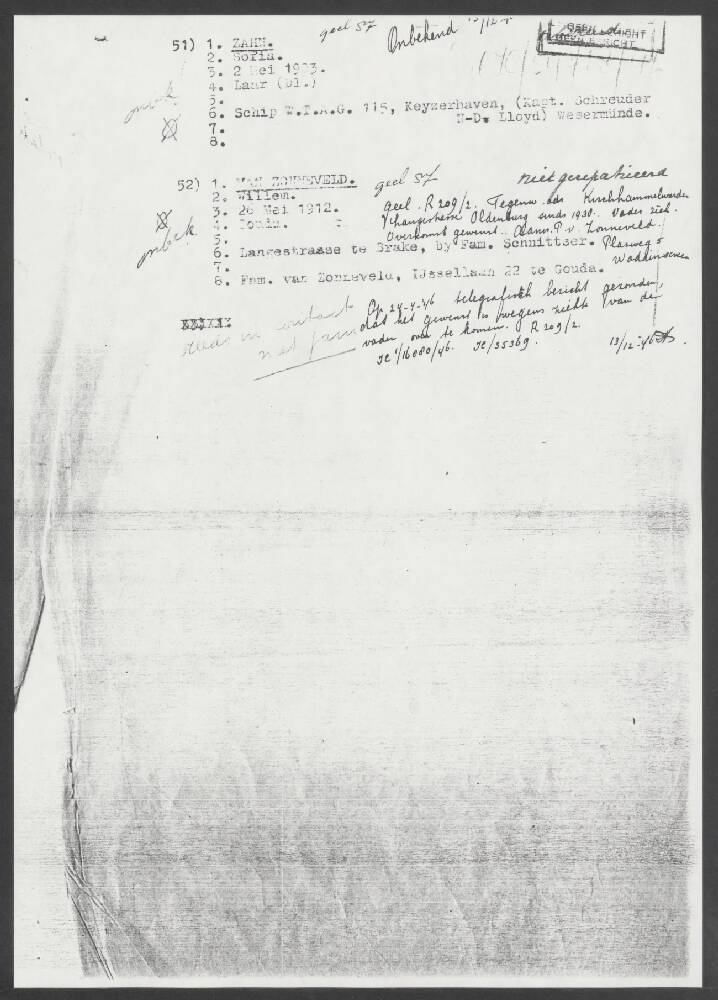 geel 57
Onbekend
GEEN BERICHT
51) 1. ZAHN.
2. Sofia.
3. 2 Mei
4. Laar
5.
6. Schip W.T.A.G. 115, Keyzerhaven, (Kapt. Schreuder
N-D. Lloyd) Wesermünde.
7.
8.
onbek
52) 1. VAN ZONNEVELD.
geel 57
niet gerepatrieerd
2. Willem.
3. 26 Mei 1912.
4.
5.
6. Langestrasse te Brake, by Fam. Schnittser.
7.
8. Fam. van Zonneveld, IJssellaan 22 te Gouda.
onbek
geel. R 209/2. Tegenw. adr
Oldenburg sinds 1930. Vader ziek.
Overkomst gewenst. P. v. Zonneveld.
Plasweg 5
Waddinxveen
steeds in contact
met
Op 24-4-46 telegrafisch bericht gezonden,
dat het gewenst is wegens ziekte van de
vader over te komen. R 209/2.
/16080/46. /35369.
13/12-46